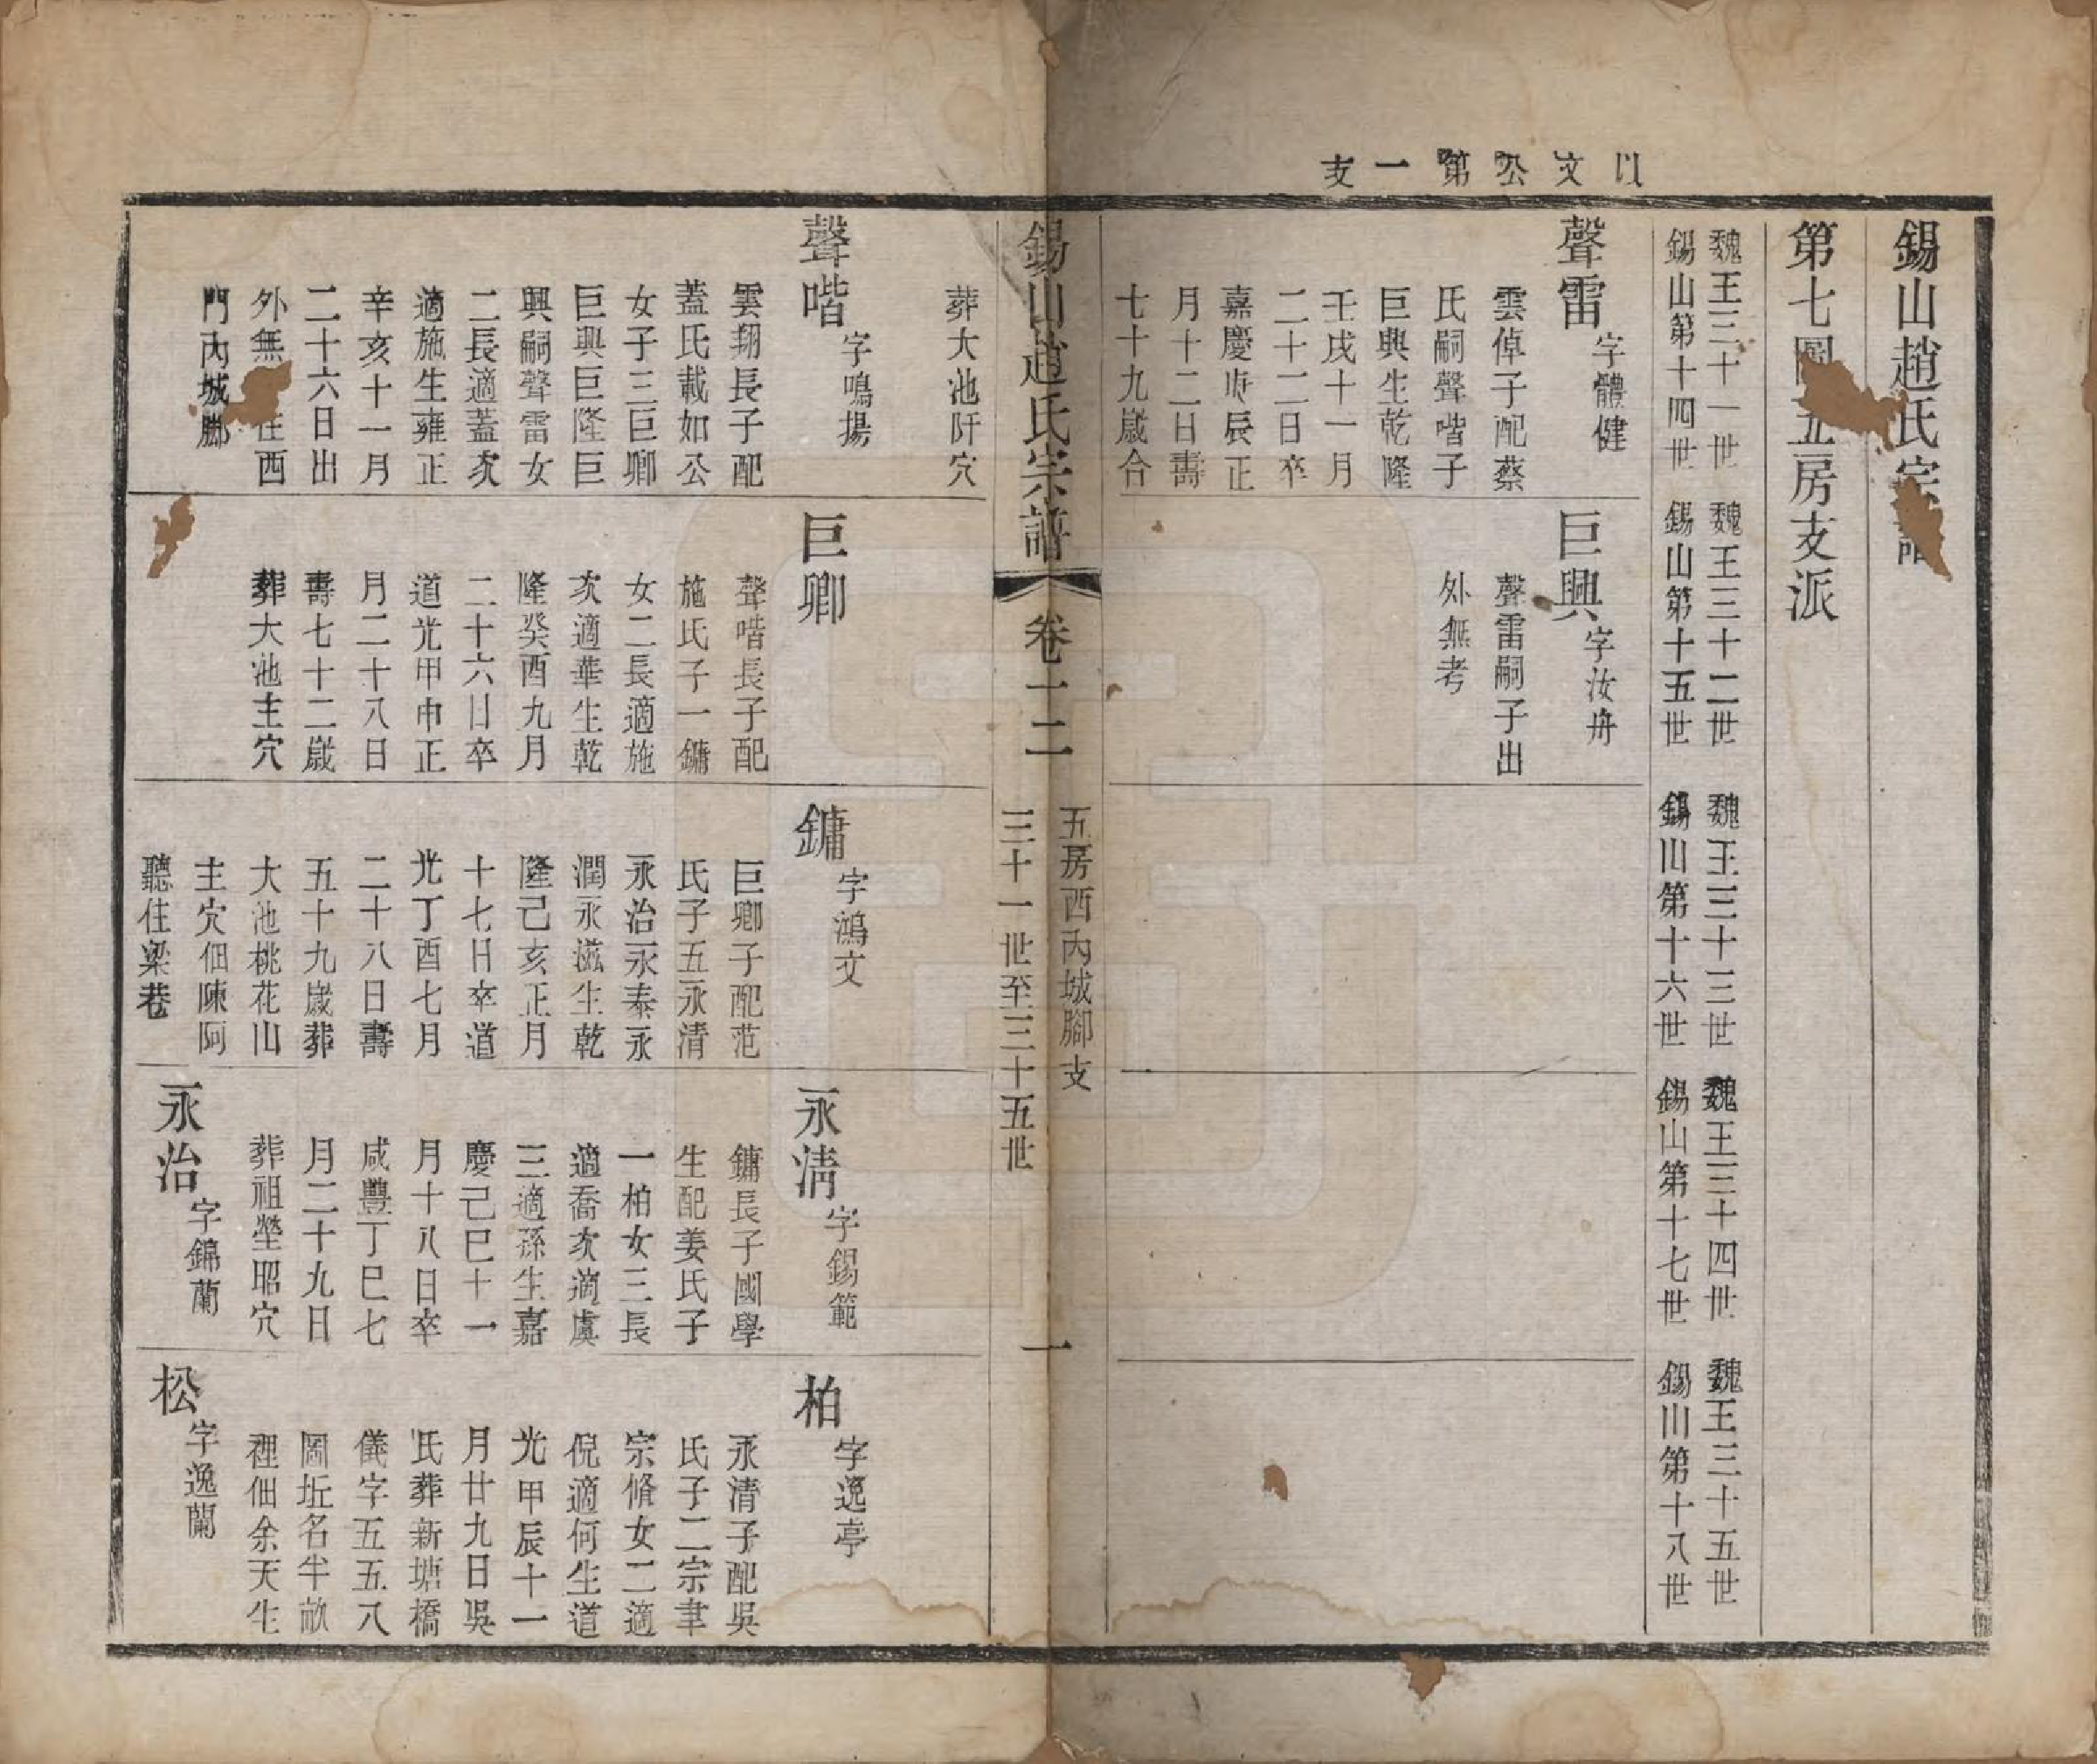 以文公第一支
錫山趙氏宗譜
第七圖五房支派
魏王三十一世
錫山第十四世
魏王三十二世
錫山第十五世
魏王三十三世
錫山第十六世
魏王三十四世
錫山第十七世
魏王三十五世
錫山第十八世
聲雷字體健
雲倬子配蔡
氏嗣聲喈子
巨興生乾隆
壬戌十一月
二十二日卒
嘉慶庚辰正
月十二日壽
七十九歲合
巨興字汝舟
聲雷嗣子出
外無考
錫山趙氏宗譜
卷十二
五房西內城腳支
三十一世至三十五世
一
葬大池阡穴
聲喈字鳴揚
雲翔長子配
蓋氏載如公
女子三巨卿
巨興巨隆巨
興嗣聲雷女
二長適蓋次
適施生雍正
辛亥十一月
二十六日出
外無 住西
門內城腳
巨卿
聲喈長子配
施氏子一鏞
女二長適施
次適華生乾
隆癸酉九月
二十六日卒
道光甲申正
月二十八日
壽七十二歲
葬大池主穴
鏞字鴻文
巨卿子配范
氏子五永清
永治永泰永
潤永滋生乾
隆己亥正月
十七日卒道
光丁酉七月
二十八日壽
五十九歲葬
大池桃花山
主穴佃陳阿
聽住梁巷
永清字錫範
鏞長子國學
生配姜氏子
一柏女三長
適喬次適虞
三適孫生嘉
慶己巳十一
月十八日卒
咸豐丁巳七
月二十九日
葬祖塋昭穴
永治字錦蘭
柏字逸亭
永清子配吳
氏子二宗聿
宗脩女二適
倪適何生道
光甲辰十一
月廿九日吳
氏葬新塘橋
儀字五五八
圖坵名半畝
裡佃余天生
松字逸蘭